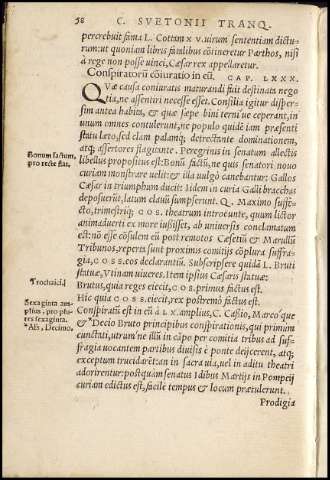 58 C. SVETONII TRANQ.
percrebuit fama L. Cottam x v. uirum sententiam dictu-
rum: ut quoniam libris fatalibus cōtineretur Parthos, nisi
à rege non posse uinci, Cæsar rex appellaretur.
Conspiratorū cōiuratio in eū. CAP. LXXX.
QVa causa coniuratis maturandi fuit destinata nego
tia, ne assentiri necesse esset. Consilia igitur disper-
sim antea habita, & quæ sæpe bini terniue ceperant, in
unum omnes contulerunt, ne populo quidē iam præsenti
statu læto, sed clam palamq; detrectante dominationem,
atq; assertores flagitante. Peregrinis in senatum allectis
Bonum factum, pro recte fiat.
libellus propositus est: Bonū factū, ne quis senatori nouo
curiam monstrare uelit: & illa uulgò canebantur: Gallos
Cæsar in triumphum ducit: Iidem in curia Galli bracchas
deposuerūt, latum clauū sumpserunt. Q. Maximo suffe-
cto, trimestriq; COS. theatrum introeunte, quum lictor
animaduerti ex more iussisset, ab uniuersis conclamatum
est: nō esse cōsulem eū post remotos Cæsetiū & Marullū
Tribunos, reperta sunt proximis comitijs cōplura suffra-
gia, COS. eos declarantiū. Subscripsere quidā L. Bruti
statuæ, Vtinam uiueres. Item ipsius Cæsaris statuæ:
Trochaici.
Brutus, quia reges eiecit, COS. primus factus est.
Hic quia COS. eiecit, rex postremò factus est.
Sexaginta am-
plius, pro plu-
res sexaginta.
Conspiratū est in eū à LX. amplius, C. Cassio, Marco'que
*Als, Decimo.
& *Decio Bruto principibus conspirationis, qui primùm
cunctati, utrum'ne illū in cāpo per comitia tribus ad suf-
fragia uocantem partibus diuisis è ponte deijcerent, atq;
exceptum trucidarēt: an in sacra uia, uel in aditu theatri
adorirentur: postquam senatus Idibus Martijs in Pompeij
curiam edictus est, facilè tempus & locum prætulerunt.
Prodigia